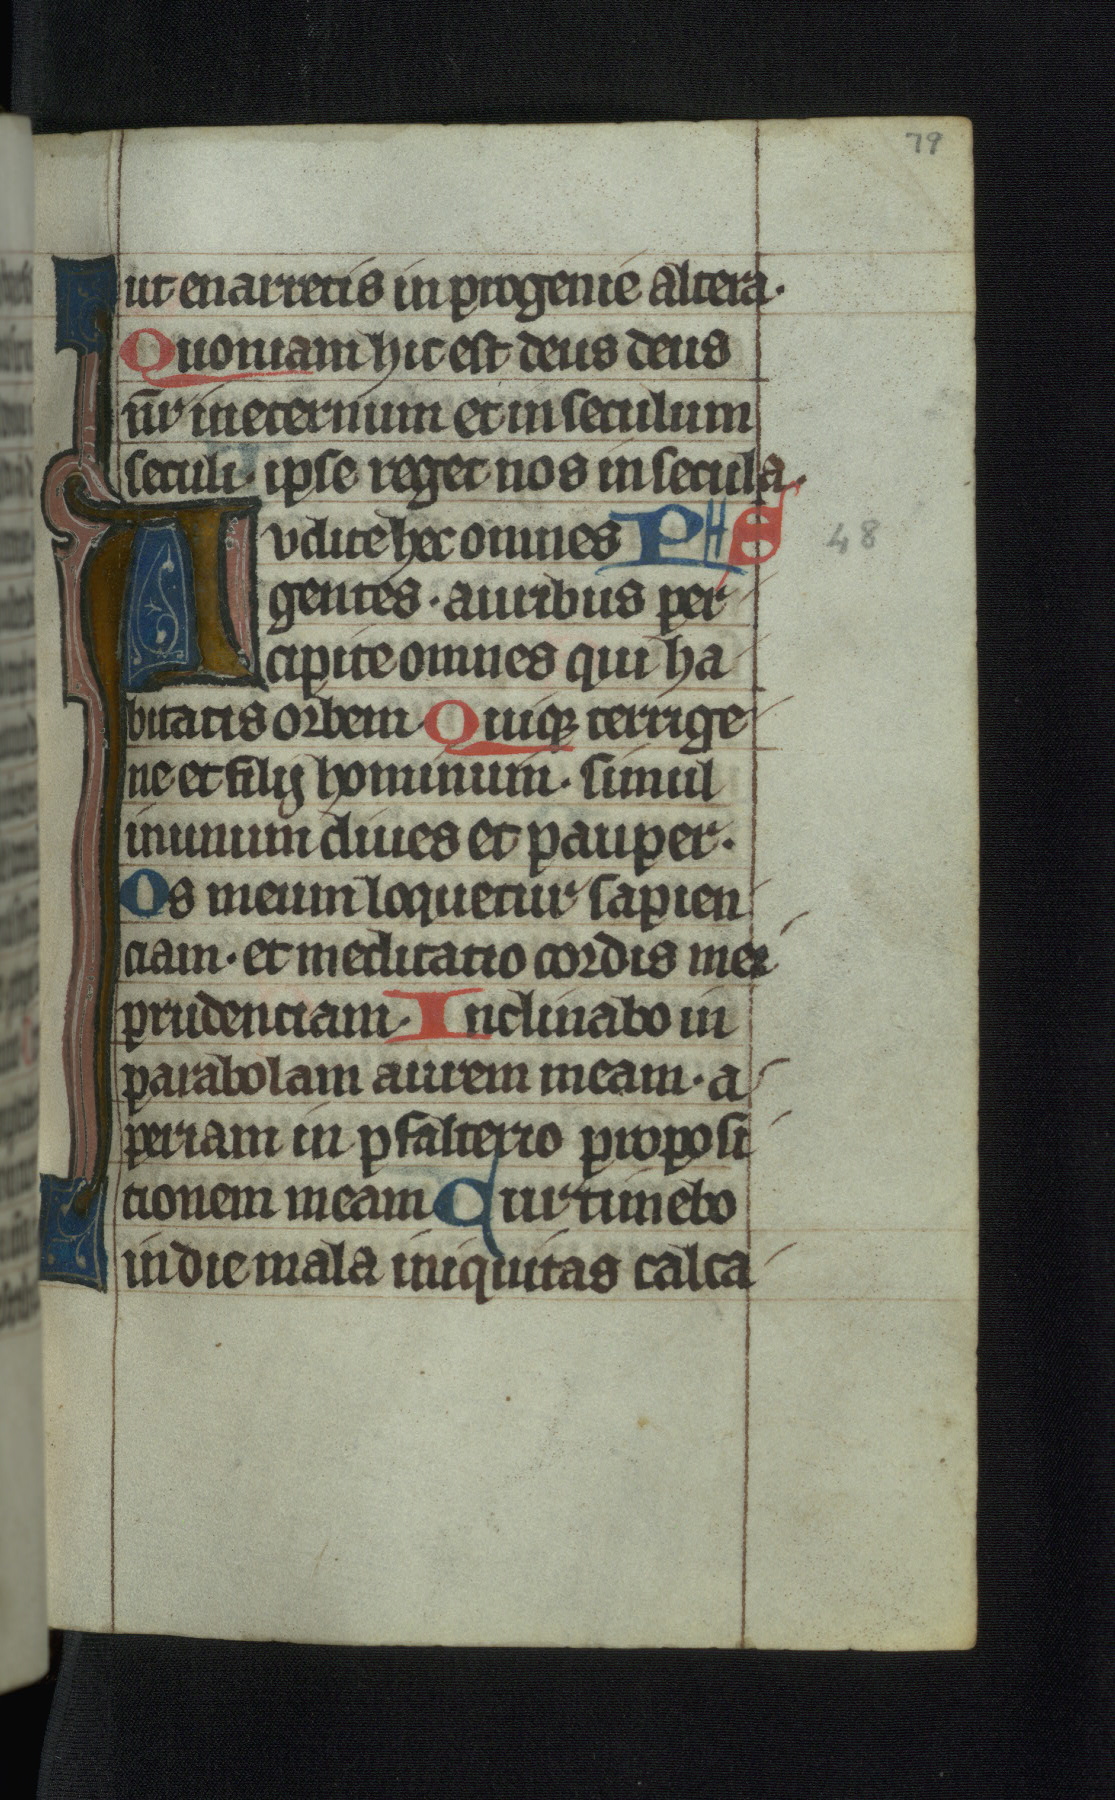 79
ut enarretis in progenie altera.
Quoniam hic est deus deus
nr̄ ineternum et in seculum
seculi. ipse reget nos in secula.
Audite hec omnes PHS 48
gentes. auribus per
cipite omnes qui ha
bitatis orbem. Quiqꝫ terrige
ne et filij hominum. simul
inunum diues et pauper.
Os meum loquetur sapien
ciam. et meditatio cordis mei
prudenciam. Inclinabo in
parabolam aurem meam. a
periam in psalterio proposi
tionem meam Cur timebo
in die mala iniquitas calca